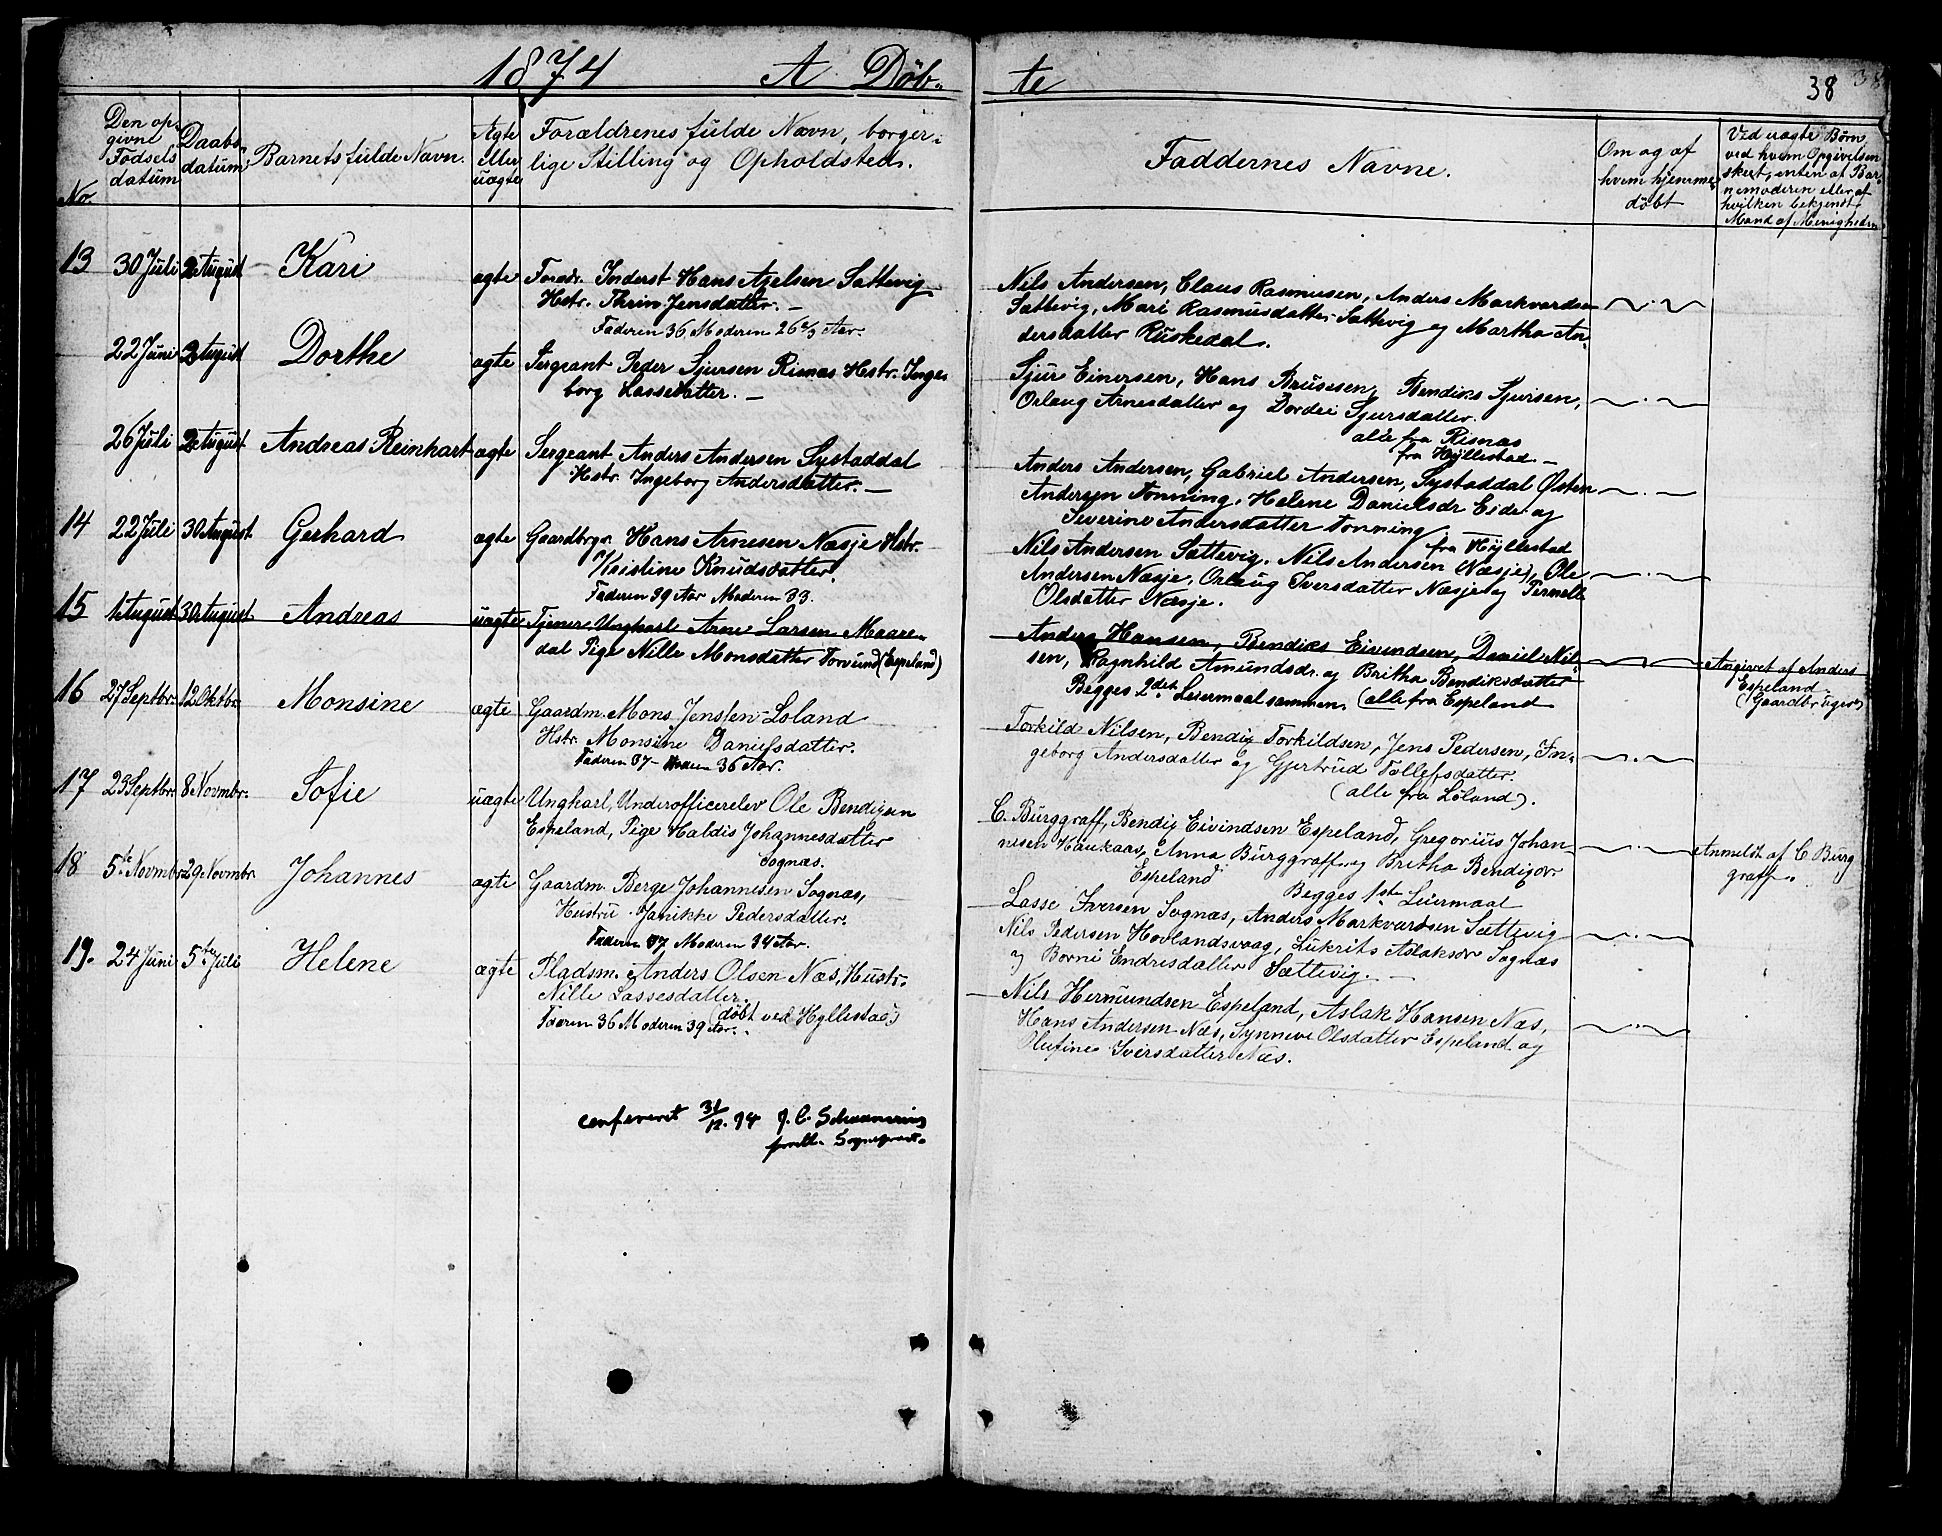 1874 A. Døb-
te
38 38
No.
Den op-
givne
Fødsels
datum
Daabs-
datum
Barnets fulde Navn.
Ægte
eller
uægte
Forældrenes fulde Navn, borger-
lige Stilling og Opholdsted.
Faddernes Navne.
Om og af
hvem hjemme-
døbt
Ved uægte Børn
ved hvem Opgivelsen
skeet, enten af Bar-
nemoderen eller af
hvilken bekjendt
Mand af Menigheden
13 30 Juli 2 August Kari ægte Foræd. Inderst Hans Axelsen Sættevig
Hstr. Thrin Jensdatter. —
Faderen 36 Moderen 26 2/3 Aar.
Nils Andersen, Claus Rasmusen, Anders Markvardsen
Sættevig, Mari Rasmusdatter Sættevig og Martha An-
dersdatter Ruskedal.
22 Juni 2 August Dorthe ægte Sergeant Peder Sjursen Risnæs Hstr. Inge-
borg Lassedatter. —
Sjur Einersen, Hans Brusesen, Bendiks Sjursen,
Orlaug Arnesdatter og Dordei Sjursdatter.
alle fra Risnæs
fra Hyllestad. —
26 Juli 2 August Andreas Reinhart ægte Sergeant Anders Andersen Systaddal
Hstr. Ingeborg Andersdatter. —
Anders Andersen, Gabriel Andersen, Systaddal Østen
Andersen Tonning, Helene Danielsdr Eide og
Severine Andersdatter Tonning
fra Hyllestad
14 22 Juli 30 August Gerhard ægte Gaardbrgr. Hans Arnesen Næsje Hstr.
Kristine Knudsdatter.
Faderen 39 Aar Moderen 33.
Nils Andersen Sættevig, Nils Andersen (Næsje), Ole
Andersen Næsje, Orlaug Iversdatter Næsje og Pernelle
Olsdatter Næsje.
15 1 August 30 August Andreas uægte Tjener, Ungkarl Arne Larsen Maare-
dal Pige Nille Monsdatter Torvund (Espeland)
Anders Hansen, Bendiks Eivendsen, Daniel Nil-
sen, Ragnhild Amundsdr. og Britha Bendiksdatter
Begges 2det Leiermaal sammen, (alle fra Espeland
Angivet af Anders
Espeland
(Gaardbruger)
16 27 Septbr. 12 Oktbr. Monsine ægte Gaardm. Mons Jensen Løland
Hstr. Monsine Danielsdatter.
Faderen 37 — Moderen 36 Aar.
Torkild Nilsen, Bendix Torkildsen, Jens Pedersen, In-
geborg Andersdatter og Gjertrud Tollefsdatter.
(alle fra Løland).
17 23 Septbr. 8 Novmbr. Sofie uægte Ungkarl, Underofficerelev Ole Bendixen
Espeland, Pige Haldis Johannesdatter
Sognæs.
C. Burggraff, Bendix Eivindsen Espeland, Gregorius Johan-
nesen Haukaas, Anna Burggraff og Britha Bendixdr
Espeland Begges 1ste Leiermaal
Anmeldt af C. Burg
graff.
18 5te Novmbr. 29 Novmbr. Johannes ægte Gaardm. Berge Johannesen Sognæs,
Hustru Janikke Pedersdatter.
Faderen 37 Moderen 34 Aar.
Lasse Iversen Sognæs, Anders Markvardsen Sættevig
Nils Pedersen Hovlandsvaag, Lukrits Aslaksdr Sognæs
og Borni Endresdatter Sættevig. —
19. 24 Juni 5te Juli Helene ægte Pladsm. Anders Olsen Næs, Hustr.
Nille Lassesdatter.
(døbt ved Hyllestad)
Faderen 36 Moderen 39 Aar.
Nils Hermundsen Espeland, Aslak Hansen Næs,
Hans Andersen Næs, Synneve Olsdatter Espeland og
Olufine Iversdatter Næs.
confereret 31/12. 74 J. C. Schaanning
Sogneprest.